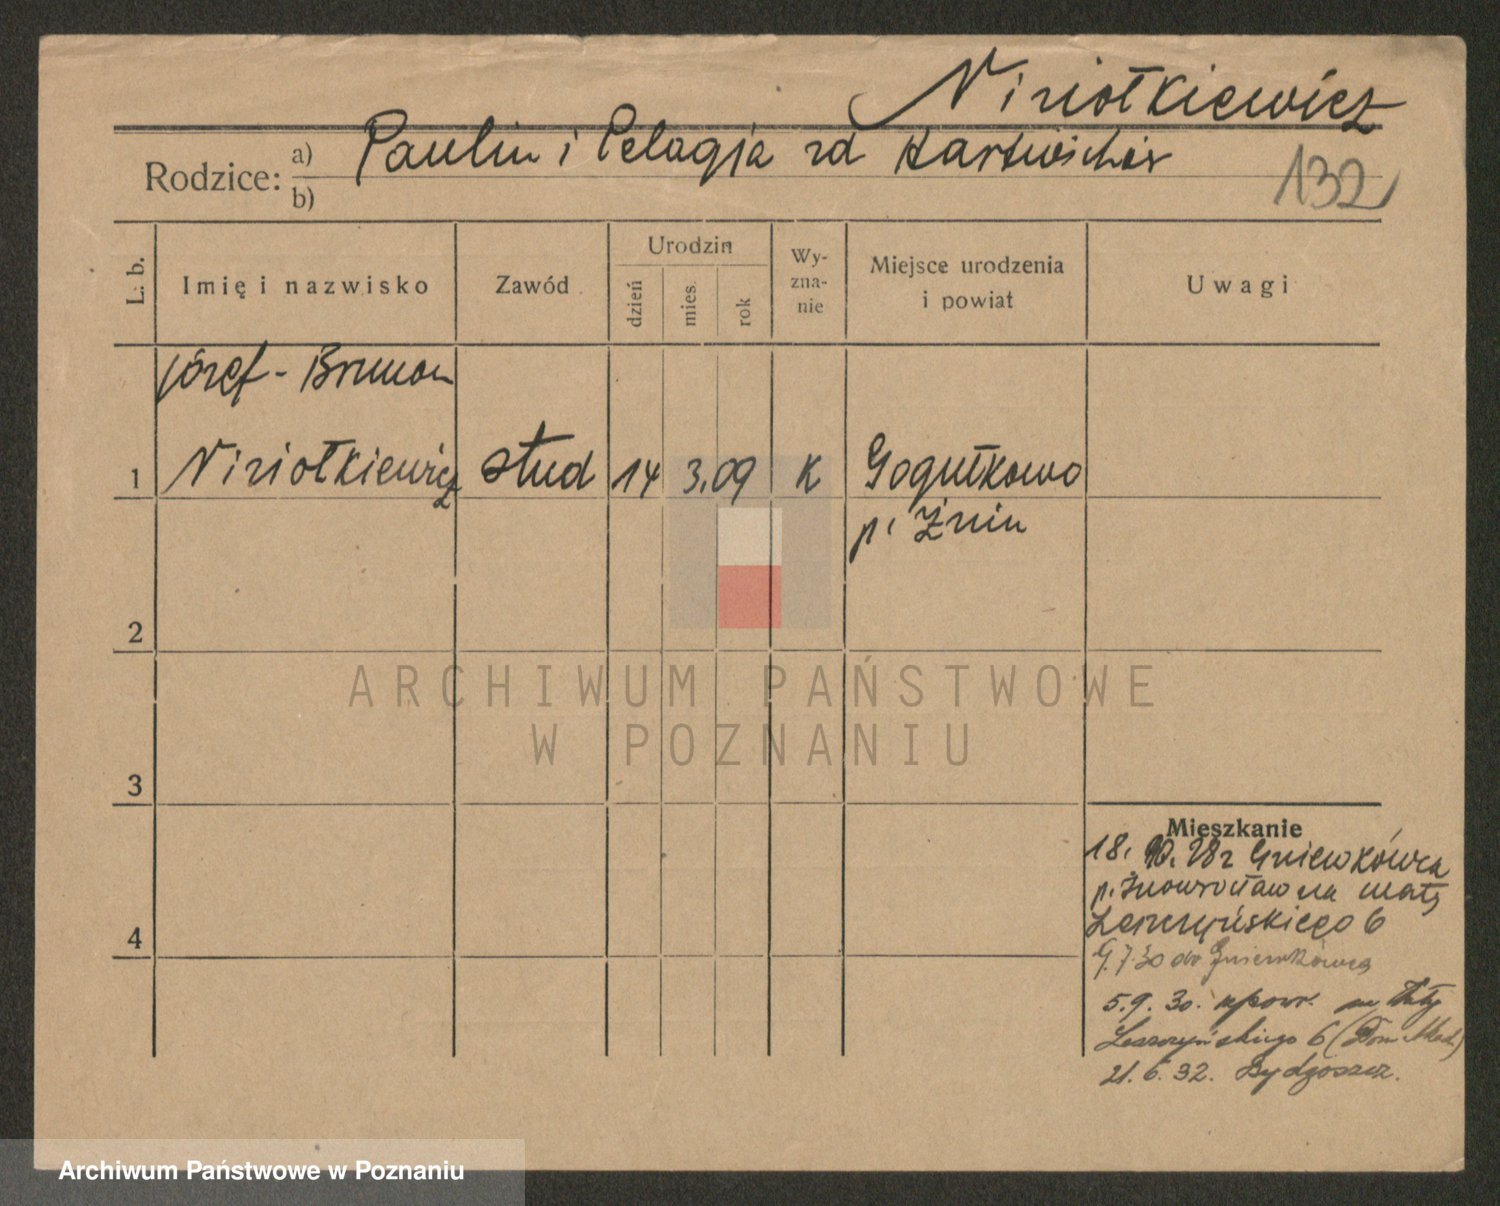 Niziołkiewicz
Rodzice: a) Paulin i Pelagja zd Hartwichów
b)
132
L. b.
Imię i nazwisko
Zawód
Urodzin
dzień
mies.
rok
Wy-
zna-
nie
Miejsce urodzenia
i powiat
Uwagi
Józef - Brunon
1 Niziołkiewicz stud 14 3.09 K Gogułkowo
p. Żnin
2
ARCHIWUM PAŃSTWOWE
W POZNANIU
3
4
Mieszkanie
18. 10. 28 z Gniewkówca
p. Inowrocław na
Leszczyńskiego 6
9.7.30 do Gniewkówca
5.9. 30.
Leszczyńskiego 6 (Dom
21. 6. 32. Bydgoszcz.
Archiwum Państwowe w Poznaniu